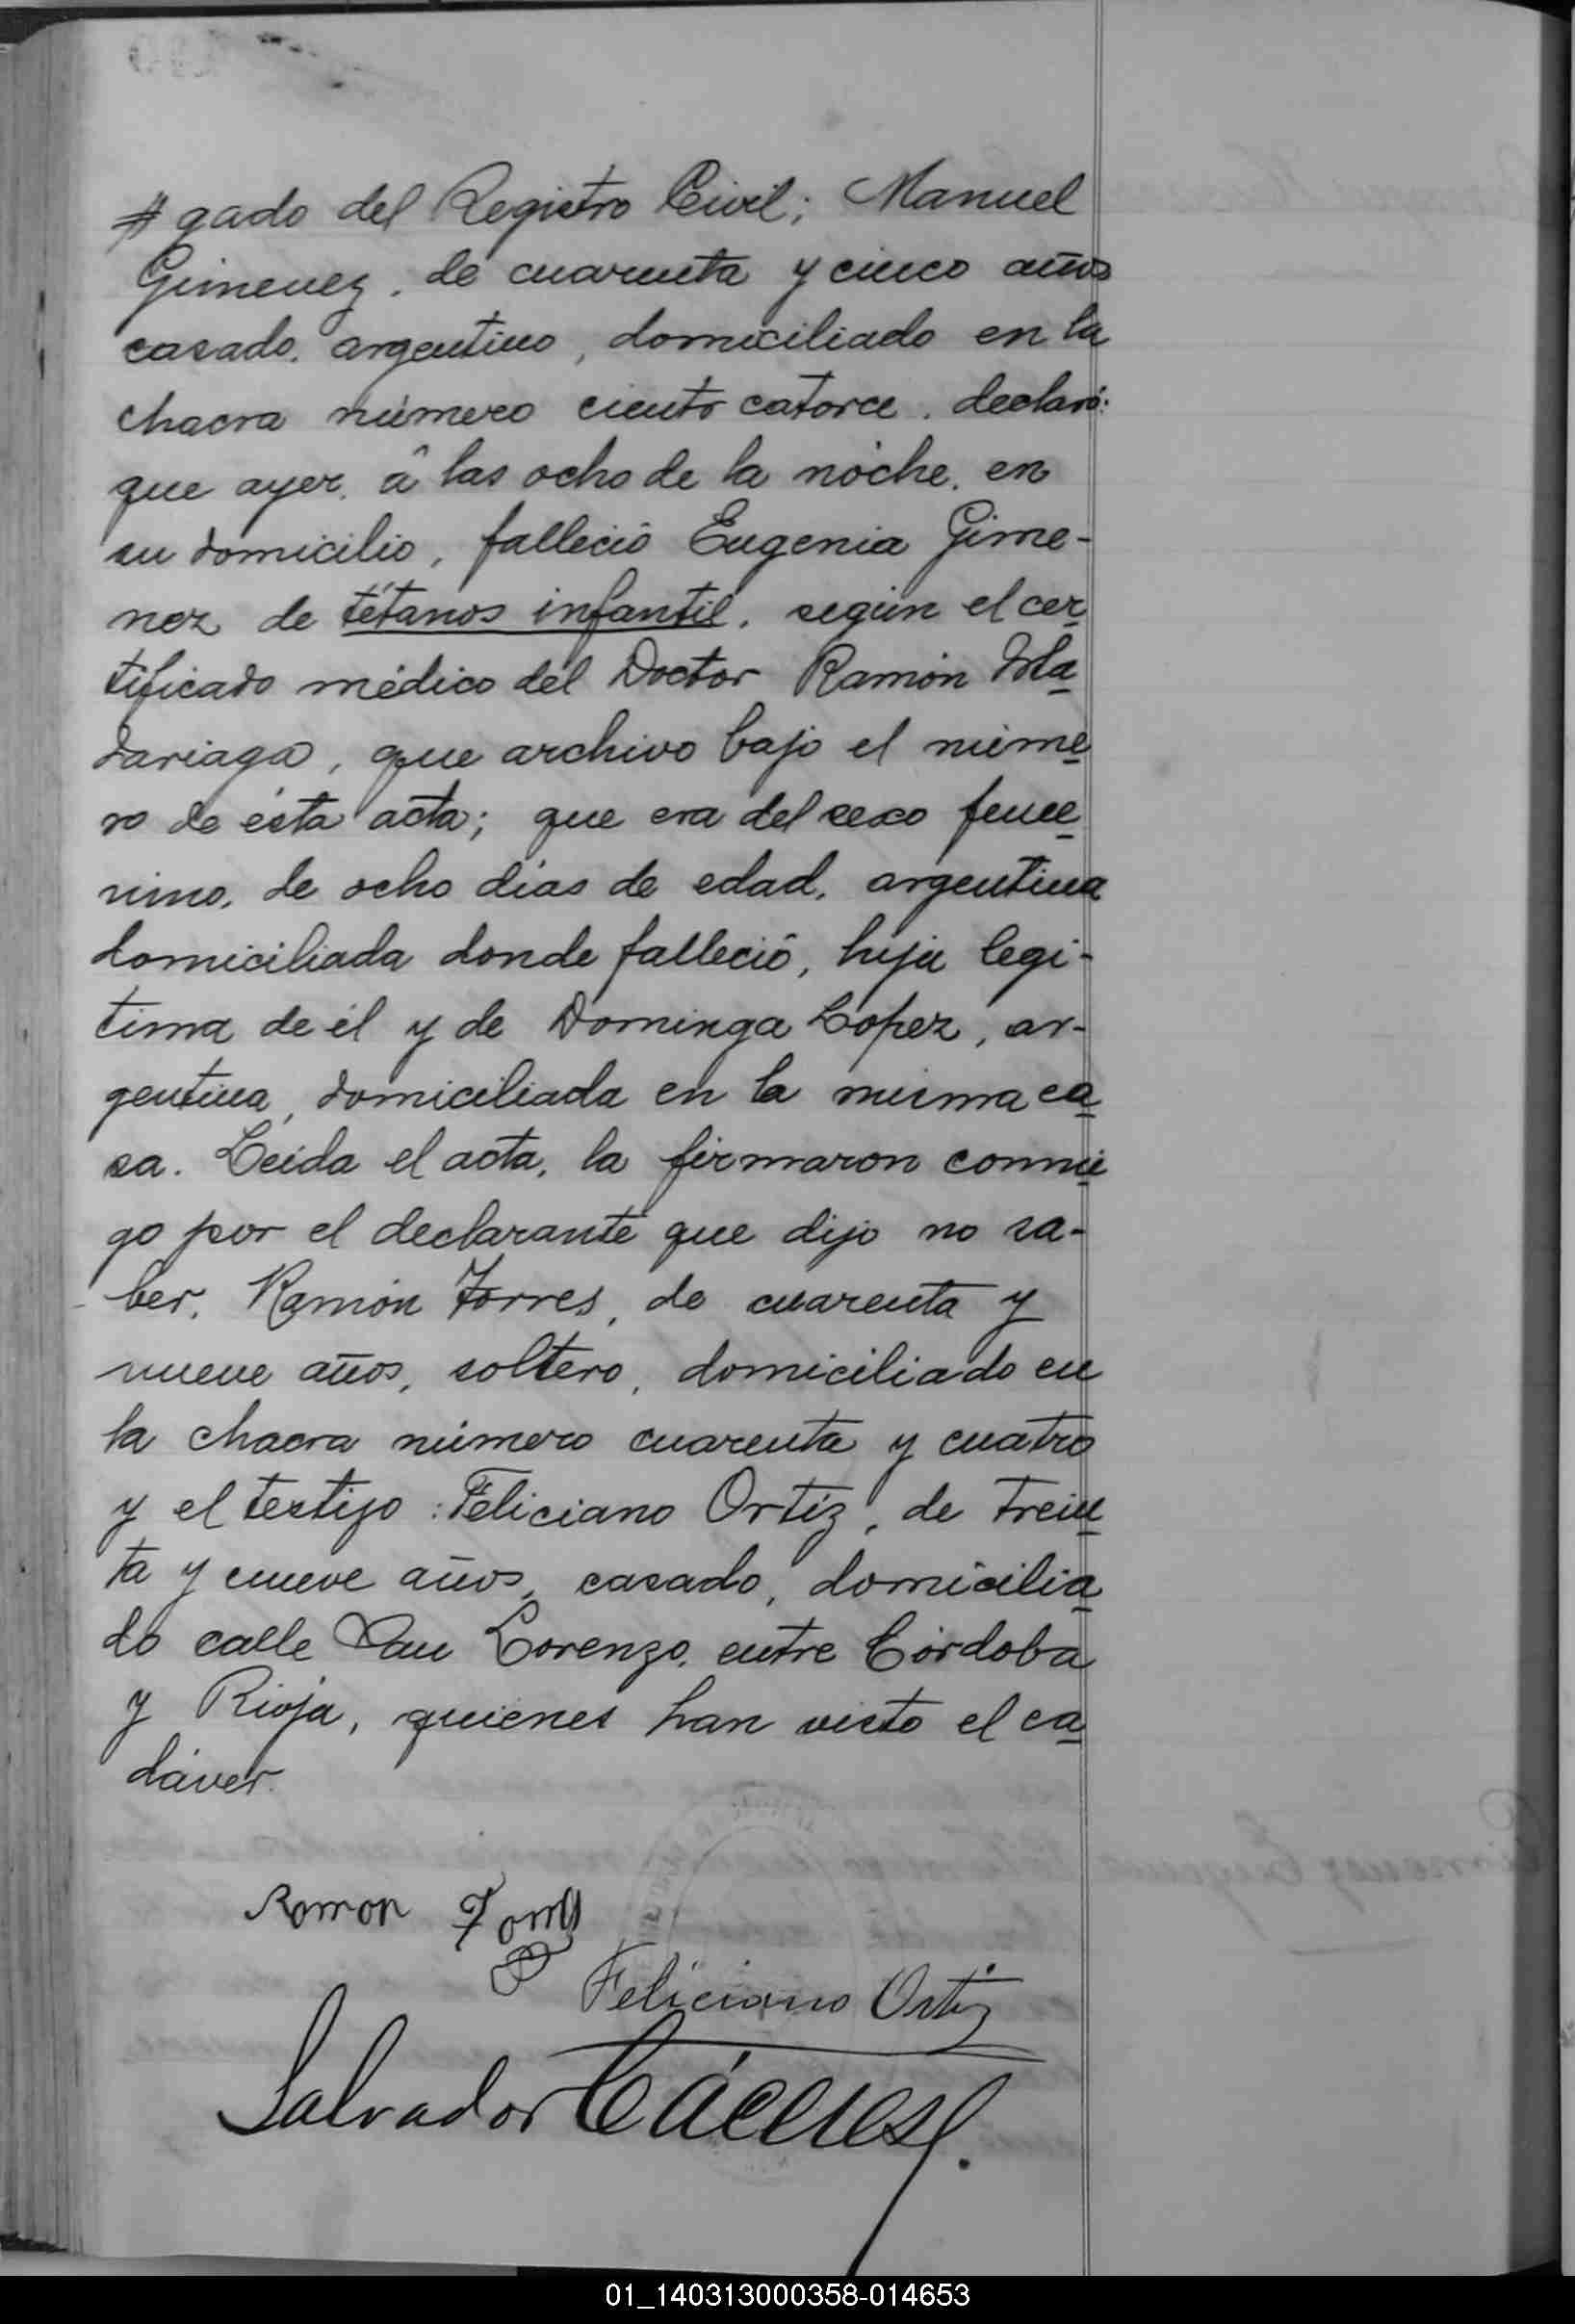 gado del Registro Civil; Manuel
Gimenez, de cuarenta y cinco años
casado, argentino, domiciliado en la
chacra número ciento catorce, declaró:
que ayer, á las ocho de la noche, en
su domicilio, falleció Eugenia Gime-
nez de tétanos infantil, según el cer
tificado médico del Doctor Ramón Ma
dariaga, que archivo bajo el núme
ro de ésta acta; que era del sexo feme
nino, de ocho días de edad, argentina
domiciliada donde falleció, hija legí-
tima de él y de Dominga Lopez, ar-
gentina, domiciliada en la misma ca
sa. Leída el acta, la firmaron conmi
go por el declarante que dijo no sa-
ber, Ramón Torres, de cuarenta y
nueve años, soltero, domiciliado en
la chacra número cuarenta y cuatro
y el testigo: Feliciano Ortíz, de trein
ta y nueve años, casado, domicilia
do calle San Lorenzo, entre Córdoba
y Rioja, quienes han visto el ca
dáver.
Ramon Torres
Feliciano Ortiz
Salvador Cáceres
01_140313000358-014653